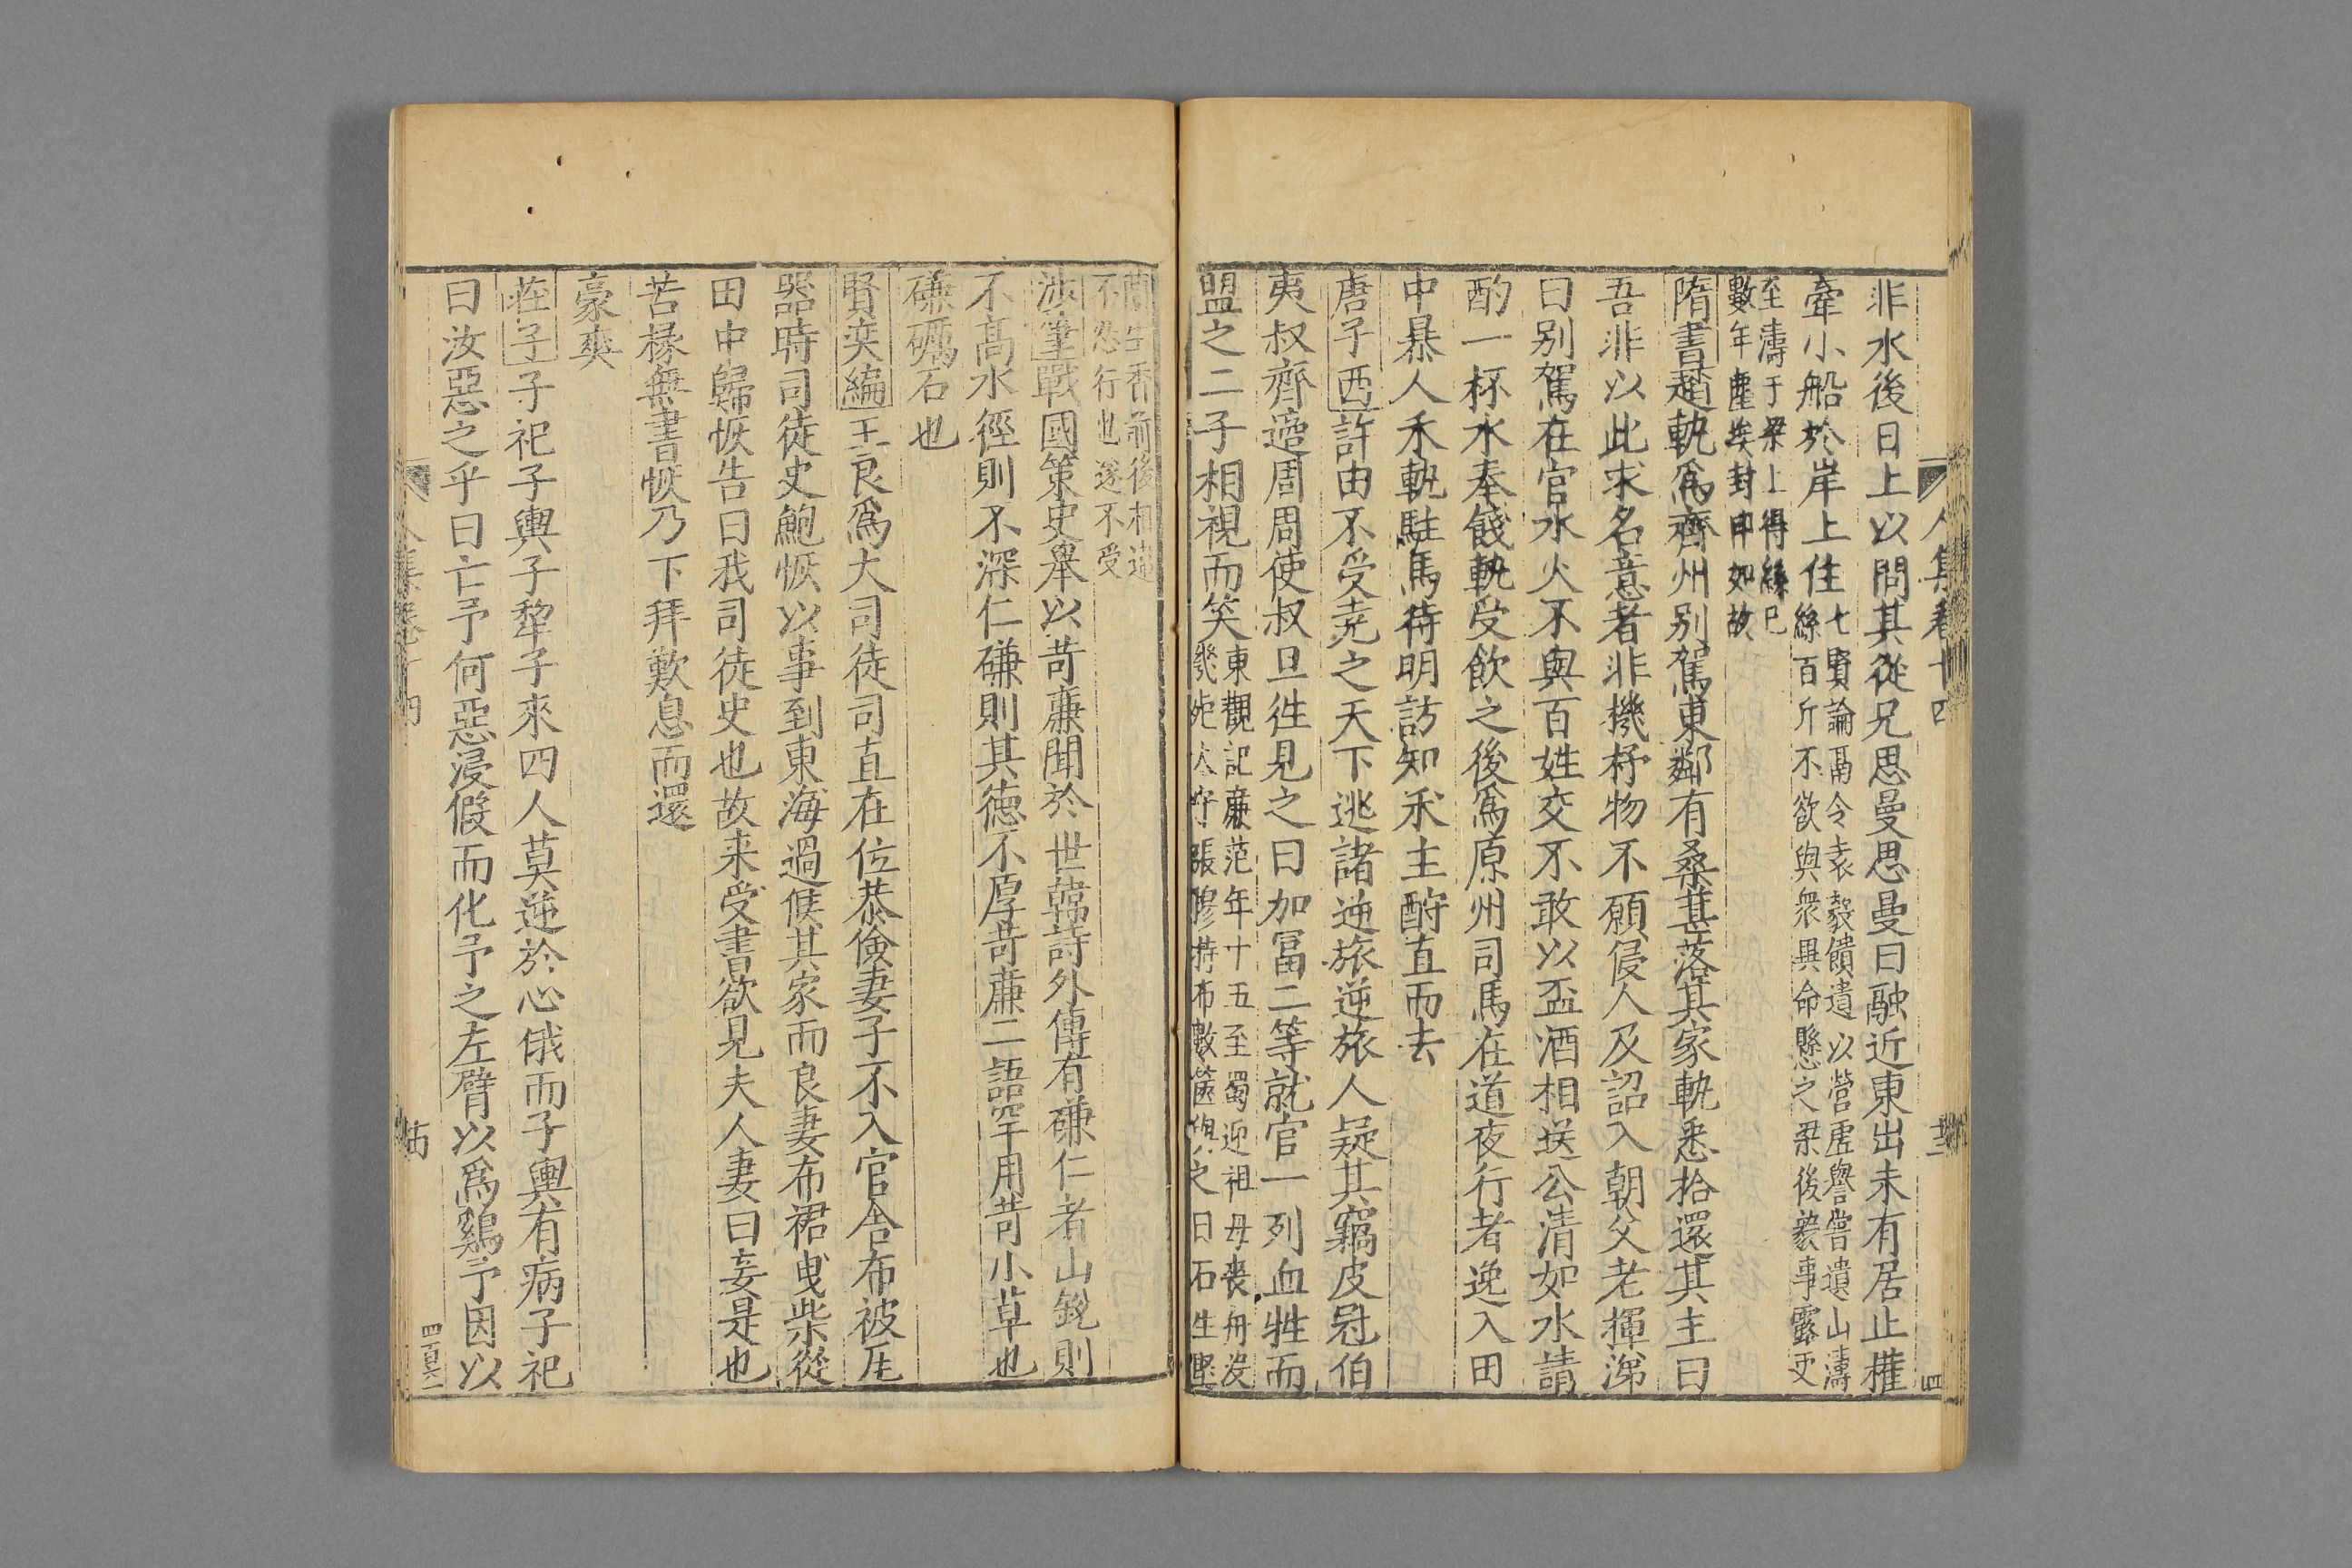 人集卷十四
非水後日上以問其從兄思曼思曼曰融近東出未有居止權
牽小船於岸上住七賢論鬲令袁毅饋遺以營虛譽嘗遺山濤
絲百斤不欲與衆異命懸之梁後毅事露吏
至濤于梁上得絲已
數年塵埃封印如故
隋書趙軌為齊州别駕東鄰有桑葚落其家軌悉拾還其主曰
吾非以此求名意者非機杼物不願侵人及詔入朝父老揮涕
曰别駕在官水火不與百姓交不敢以盃酒相送公清如水請
酌一杯水奉餞軌受飲之後爲原州司馬在道夜行者逸入田
中暴人禾軌駐馬待明訪知禾主酧直而去
唐子西許由不受尭之天下逃諸逆旅逆旅人疑其竊皮冠伯
夷叔齊適周周使叔旦徃見之曰加冨二等就官一列血牲而
盟之二子相視而笑東觀記廉范年十五至蜀迎祖母喪舟沒
幾死太守張穆持布數篋與之曰石生堅
蘭生香前後相違
不忍行也遂不受
涉筆戰國策史舉以苛廉聞於世韓詩外傳有磏仁者山銳則
不髙水徑則不深仁磏則其德不厚苛廉二語罕用苛小草也
磏礪石也
賢奕編王良爲大司徒司直在位恭儉妻子不入官舍布被瓦
器時司徒史鮑恢以事到東海過候其家而良妻布裙曵柴從
田中歸恢告曰我司徒史也故来受書欲見夫人妻曰妾是也
苦掾無書恢乃下拜歎息而還
豪爽
荘子子祀子輿子犂子來四人莫逆於心俄而子輿有病子祀
曰汝惡之乎曰亡予何惡浸假而化予之左臂以爲鷄予因以
四百六一
人集卷十四